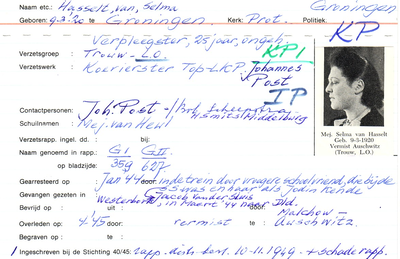 Naam etc.: Hasselt, van, Selma Groningen
Geboren: 9-3-'20 te Groningen Kerk: Prot. Politiek. KP
Verpleegster, 25 jaar, ongeh.
Verzetsgroep: Trouw - L.O. KP1
Verzetswerk: Koerierster Top-LKP Johannes Post IP
Contactpersonen: Joh. Post -
Schuilnamen: Mej. van
Verzetsrapp. ingel. dd.: bij:
Naam genoemd in rapp.: GI GII
op bladzijde: 359 627
Gearresteerd op Jan '44 door: in de trein door vroegere
Gevangen gezeten in Westerbork SS was en haar als Jodin kende
Jacob van der Sluis
Bevrijd op: uit door: in Maart '44 naar Dld.
Malchow -
Overleden op: 4'45 door: vermist te Auschwitz.
Begraven op: te
Ingeschreven bij de Stichting 40/45: rapp. distr. 10-11.1949 + schaderapp.
Mej. Selma van Hasselt
Geb. 9-3-1920
Vermist Auschwitz
(Trouw, L.O.)